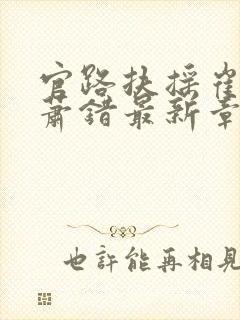 官路扶摇崔
萧错最新章
也许能再相见